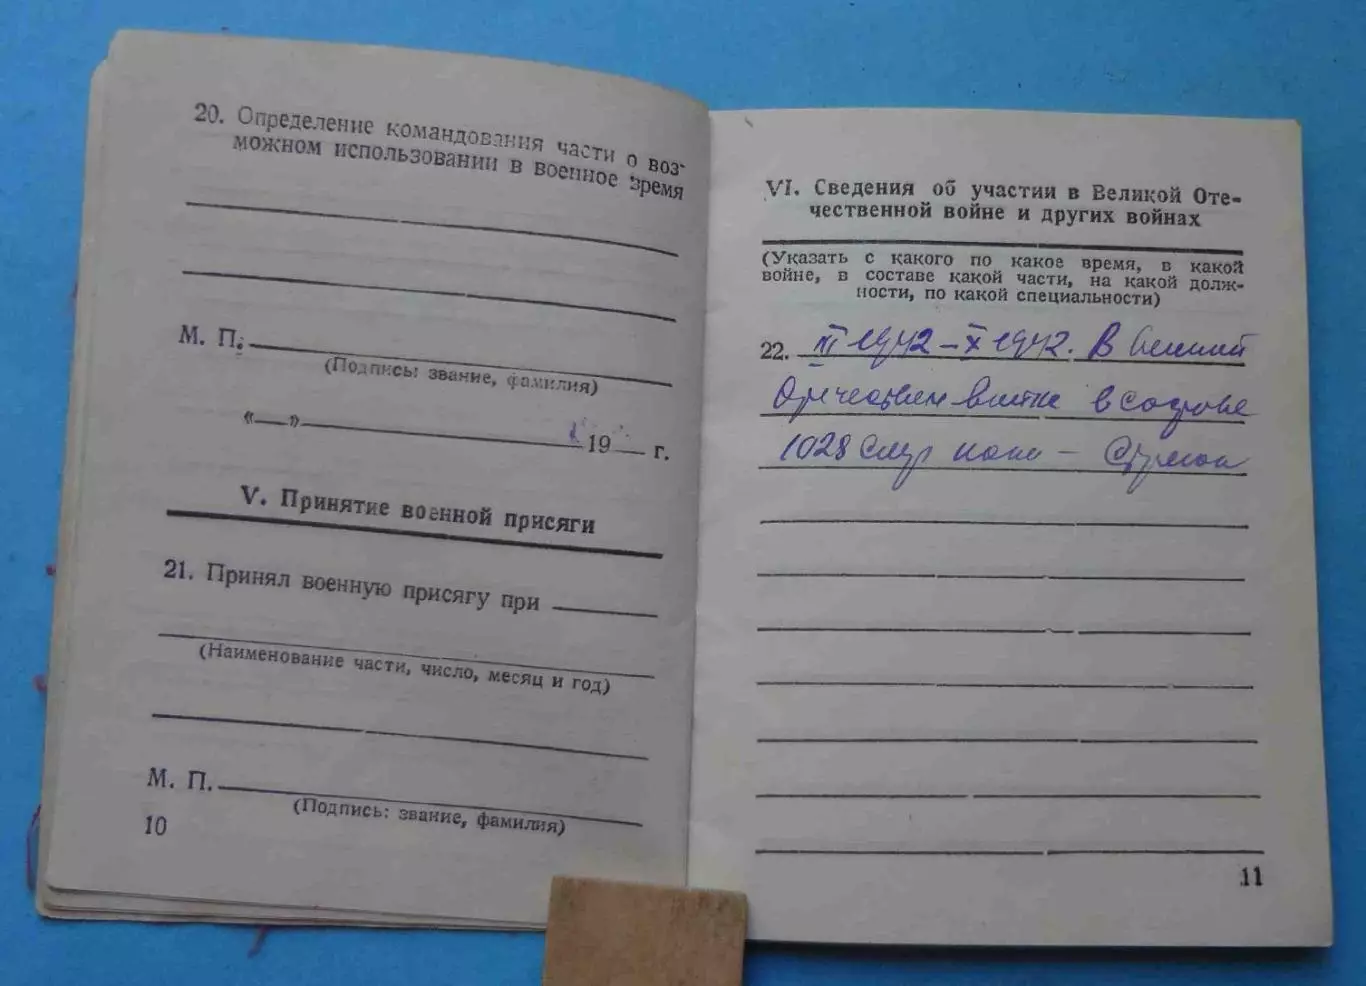 20. Определение командования части о воз-
можном использовании в военное время
М. П.
(Подпись: звание, фамилия)
«—» 19 г.
V. Принятие военной присяги
21. Принял военную присягу при
(Наименование части, число, месяц и год)
М. П.
(Подпись: звание, фамилия)
10
VI. Сведения об участии в Великой Оте-
чественной войне и других войнах
(Указать с какого по какое время, в какой
войне, в составе какой части, на какой долж-
ности, по какой специальности)
22. 1942 – X 1942. В Великой
Отечествен войне в составе
1028 стр полка – Стрелок
11